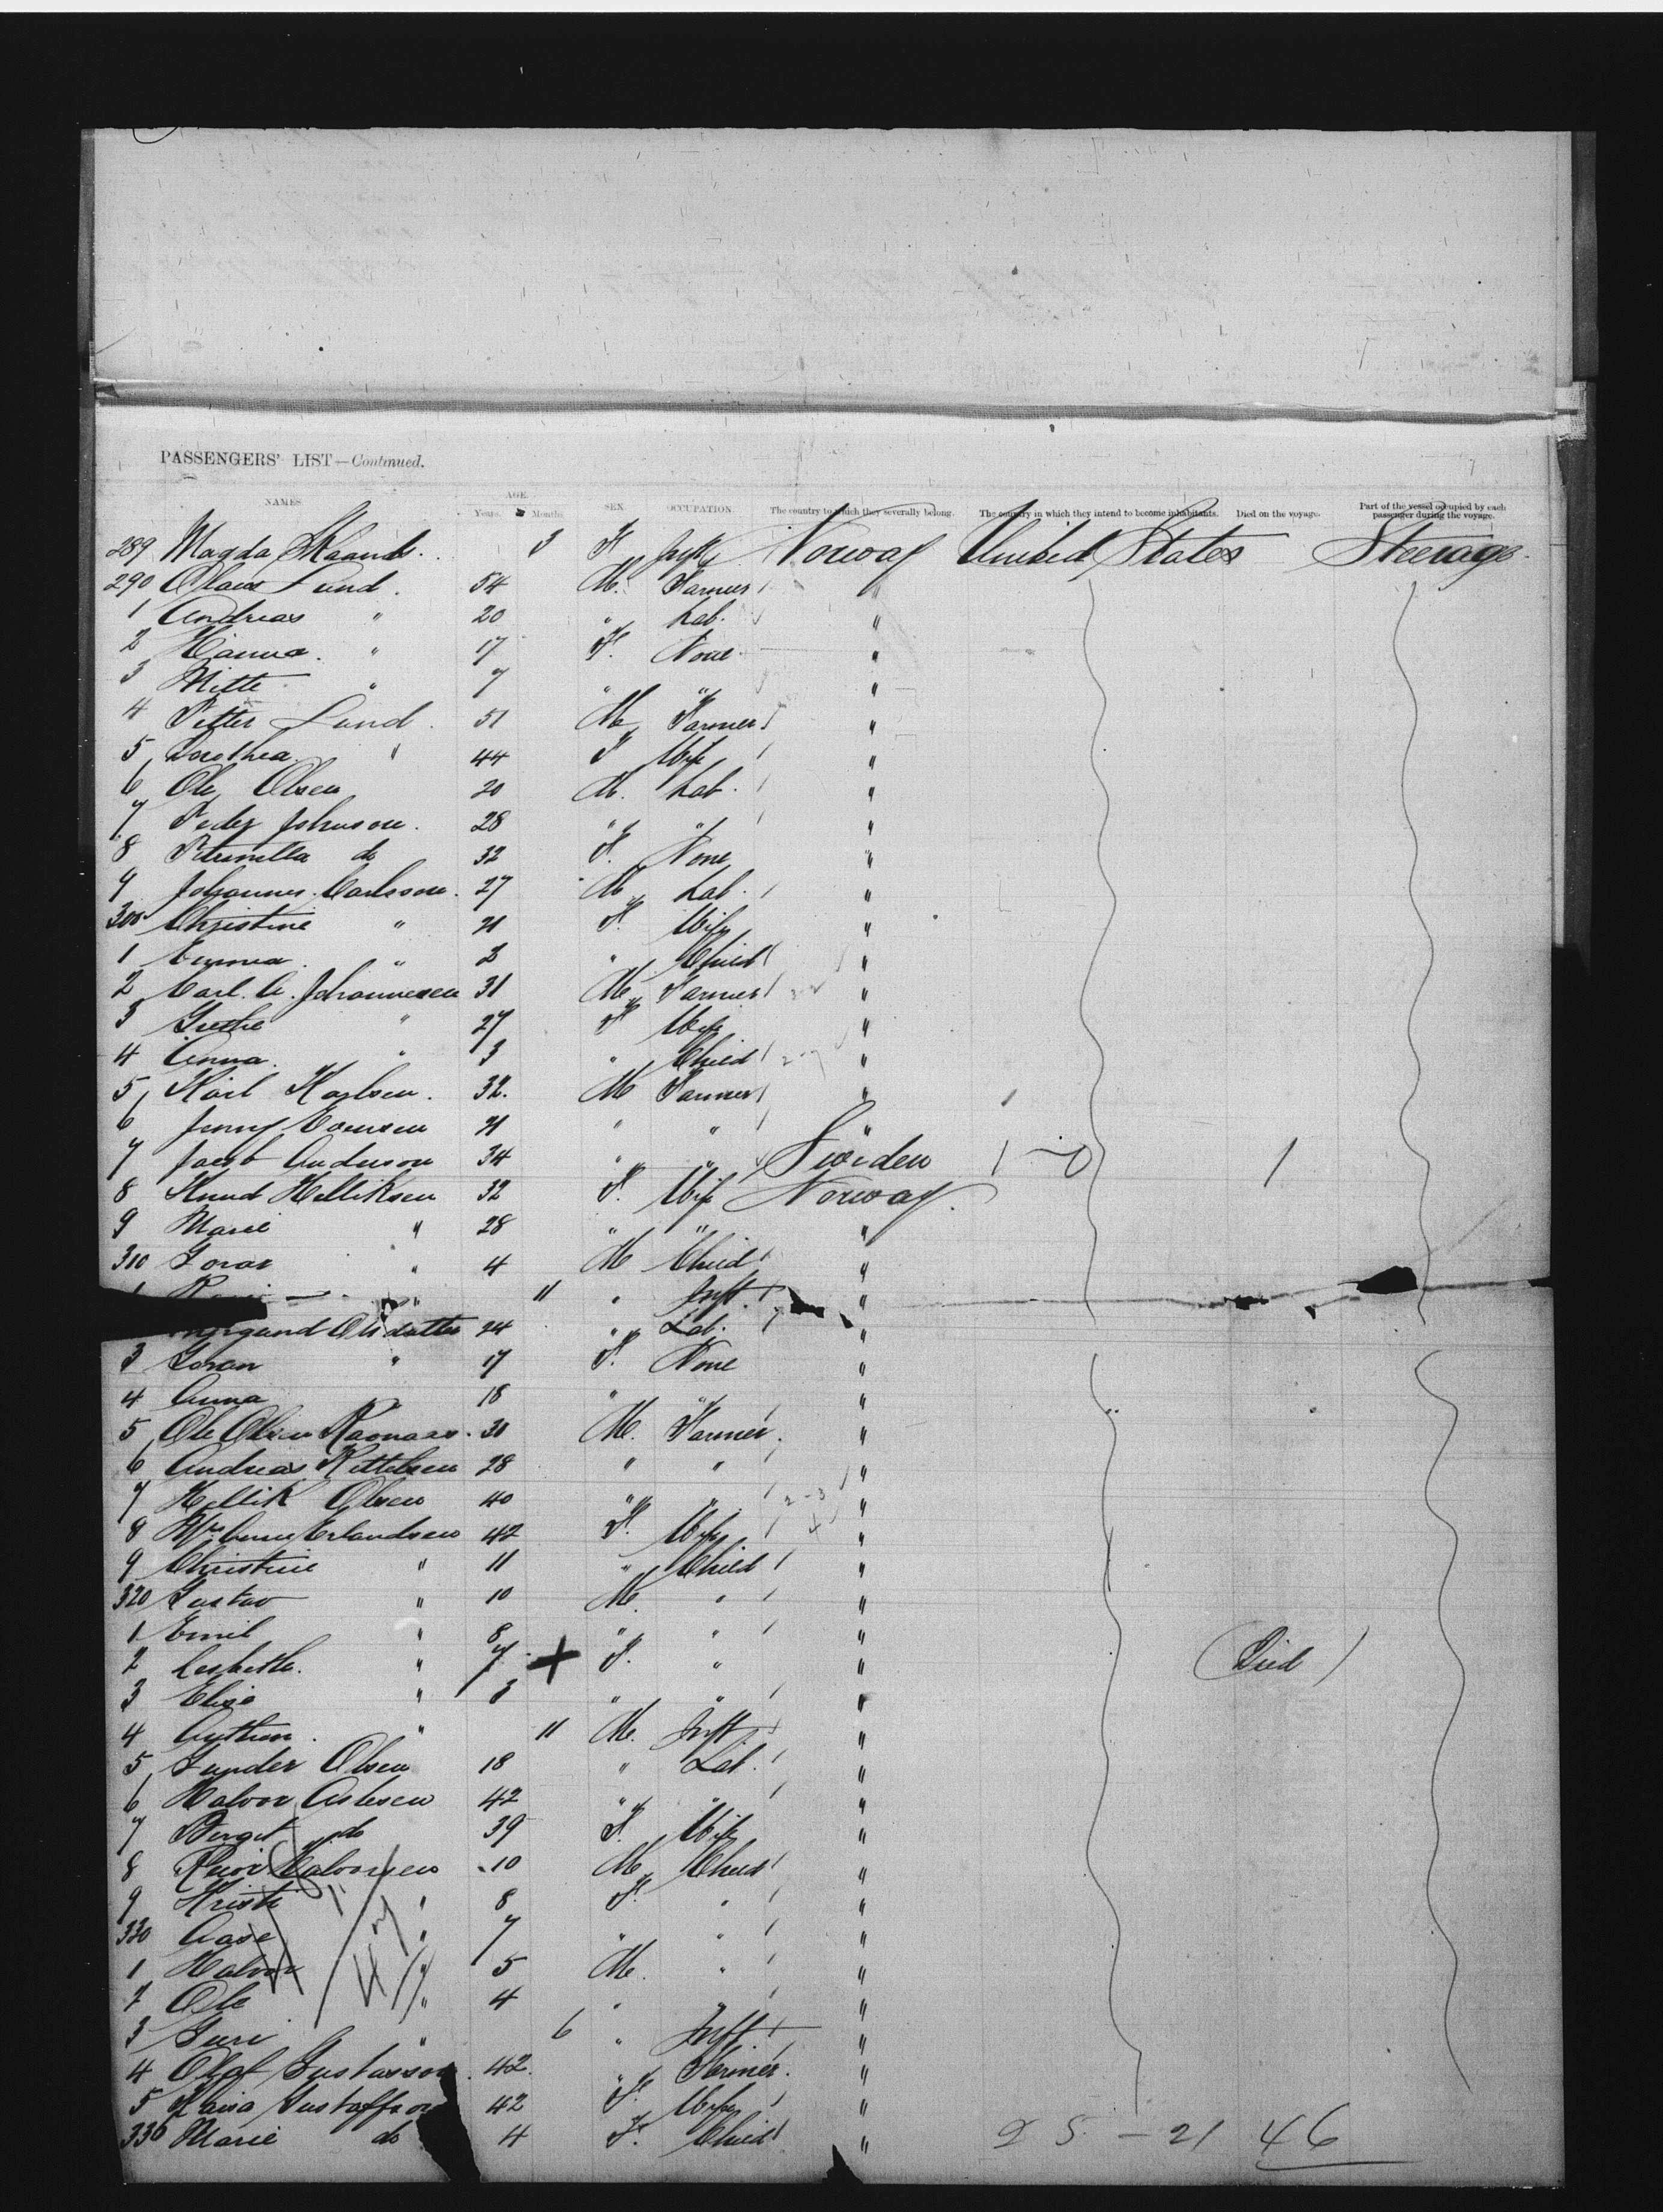 PASSENGERS' LIST—Continued.
NAMES. AGE. Years. Months. SEX. OCCUPATION. The country to which they severally belong. The country in which they intend to become inhabitants. Died on the voyage. Part of the vessel occupied by each passenger during the voyage.
289 Magda 3 F Inft Norway United States Steerage
290 Lund. 54 M. Farmer "
1 Andreas " 20 " Lab. "
2 Hanna. " 17 F. None "
3 Mitte " 7 " " "
4 Petter Lund. 51 M Farmer "
5 Dorothea " 44 F Wife "
6 Ole Olsen 20 M. Lab. "
7 Peder Johnson. 28 " " "
8 Petrunella do 32 F. None "
9 Johannes Carlsson. 27 M Lab. "
300 Christine " 21 F. Wife "
1 Emma. " 2 " Child "
2 Carl. A. Johannesen 31 M Farmer "
3 Grethe " 27 F Wife "
4 Anna. " 3 " Child "
5 Karl Karlsen. 32. M Farmer "
6 Jenny 21 " " "
7 Jacob Anderson 34 " " Sweden
8 Knud Helliksen 32 F. Wife Norway.
9 Marie " 28 " " "
310 " 4 M Child "
" 11 " Inft. "
24 " Lab. "
3 Goran " 17 F. None "
4 Anna 18 " " "
5 Ole Olsen 30 M. Farmer. "
6 Andreas Kittelsen 28 " " "
7 Hellik Olsen 40 " " "
8 Erlandsen 42 F. Wife "
9 Christine " 11 " Child "
320 Gustav " 10 M. " "
1 Emil " 8 " " "
2 " 7 + F. " " Died
3 Elise " 3 " " "
4 " 11 M. Inft "
5 Gunder Olsen 18 " Lab. "
6 Halvor Aslesen 42 " " "
7 Berget do 39 F. Wife "
8 Halvorsen 10 M Child "
9 Kristi " 8 F. " "
330 Aase " 7 " " "
1 Halvor " 5 M. " "
2 Ole " 4 " " "
3 Guri " 6 " Inft "
4 Olof Gustafsson. 42. " Farmer. "
5 Kaisa Gustaffson 42 F. Wife "
336 Marie do 4 F. Child "
25 - 21 46